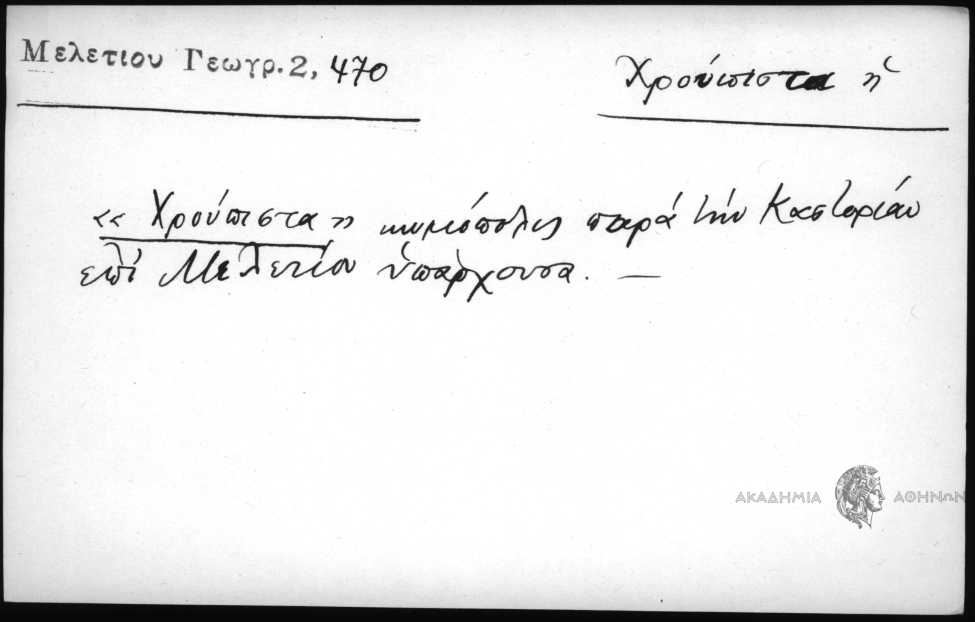 Μελετιου Γεωγρ. 2, 470
Χρούπιστα ἡ
«Χρούπιστα» κωμόπολις παρά τήν Καστορίαν
ἐπί Μελετίου ὑπάρχουσα. —
ΑΚΑΔΗΜΙΑ ΑΘΗΝΩΝ